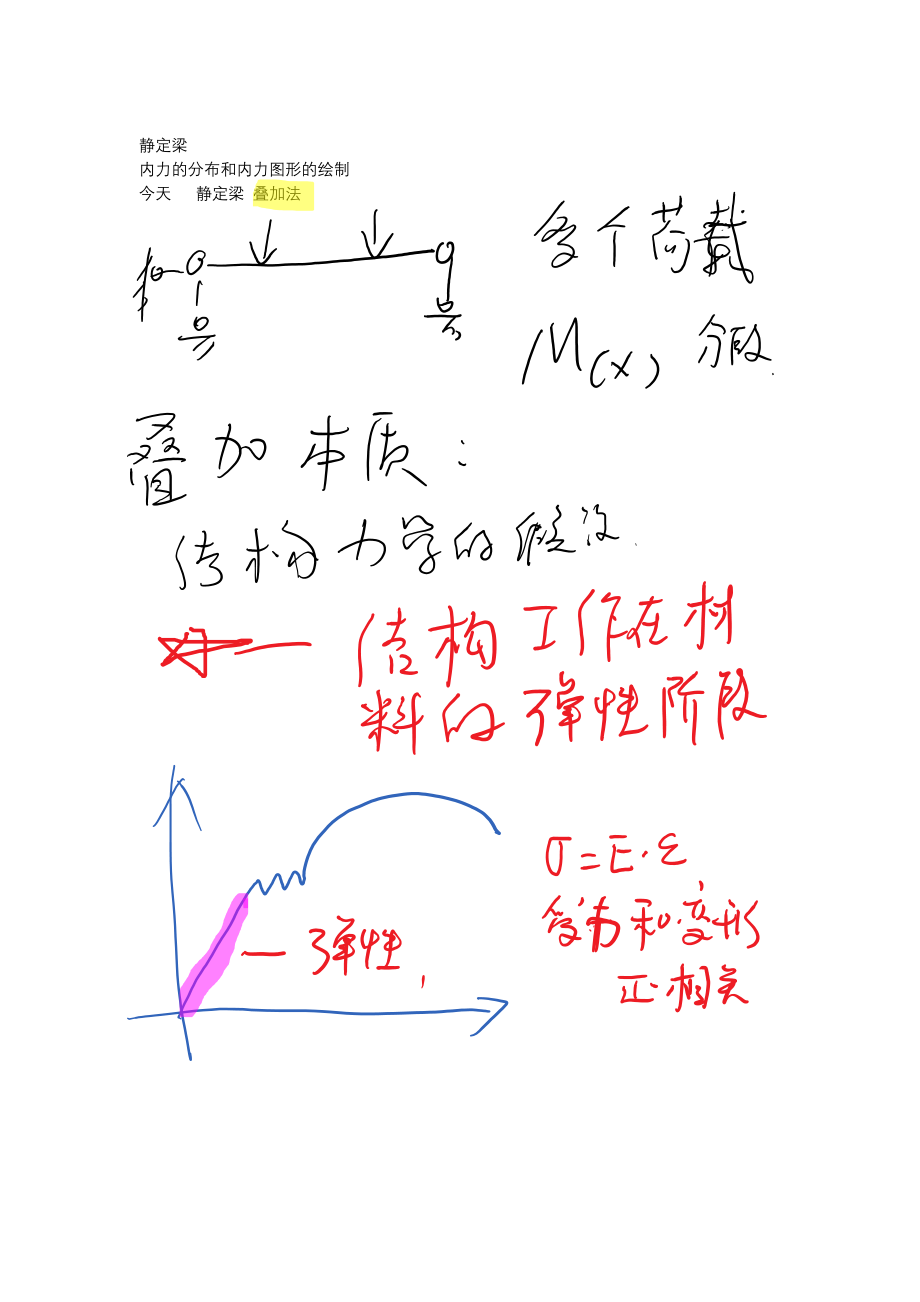 静定梁
内力的分布和内力图形的绘制
今天 静定梁 叠加法
多个荷载
M(x) 分段.
叠加本质:
结构力学的假设.
结构工作在材
料的弹性阶段
σ=E·ε
受力和变形
正相关
弹性,